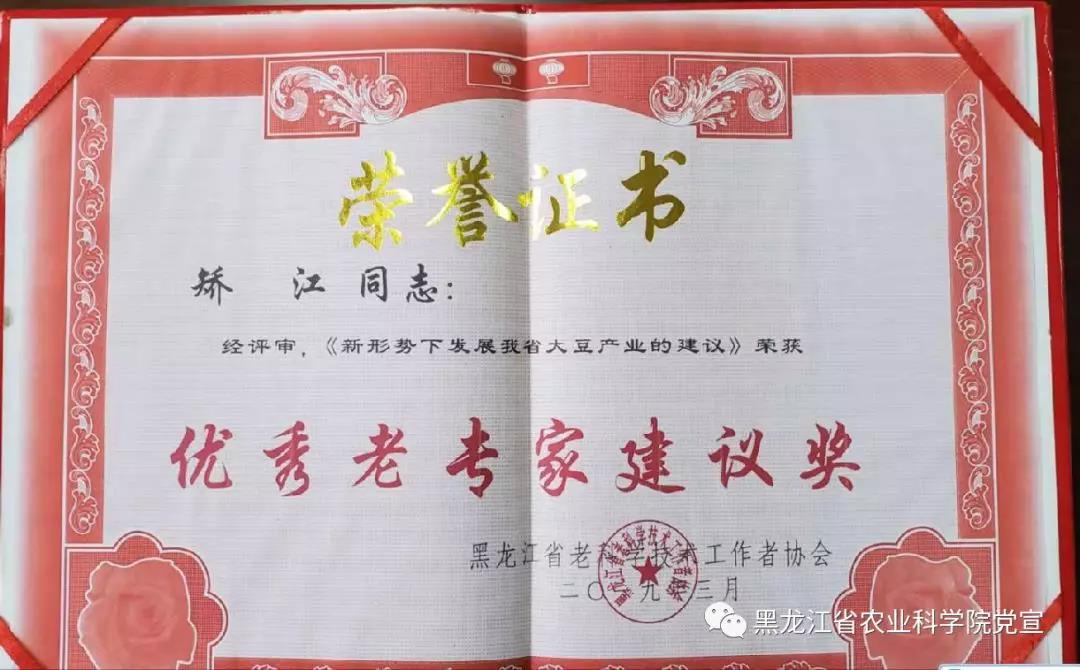 荣誉证书
矫 江 同志：
经评审，《新形势下发展我省大豆产业的建议》荣获
优秀老专家建议奖
黑龙江省老科学技术工作者协会
二〇一九年三月
黑龙江省农业科学院党宣